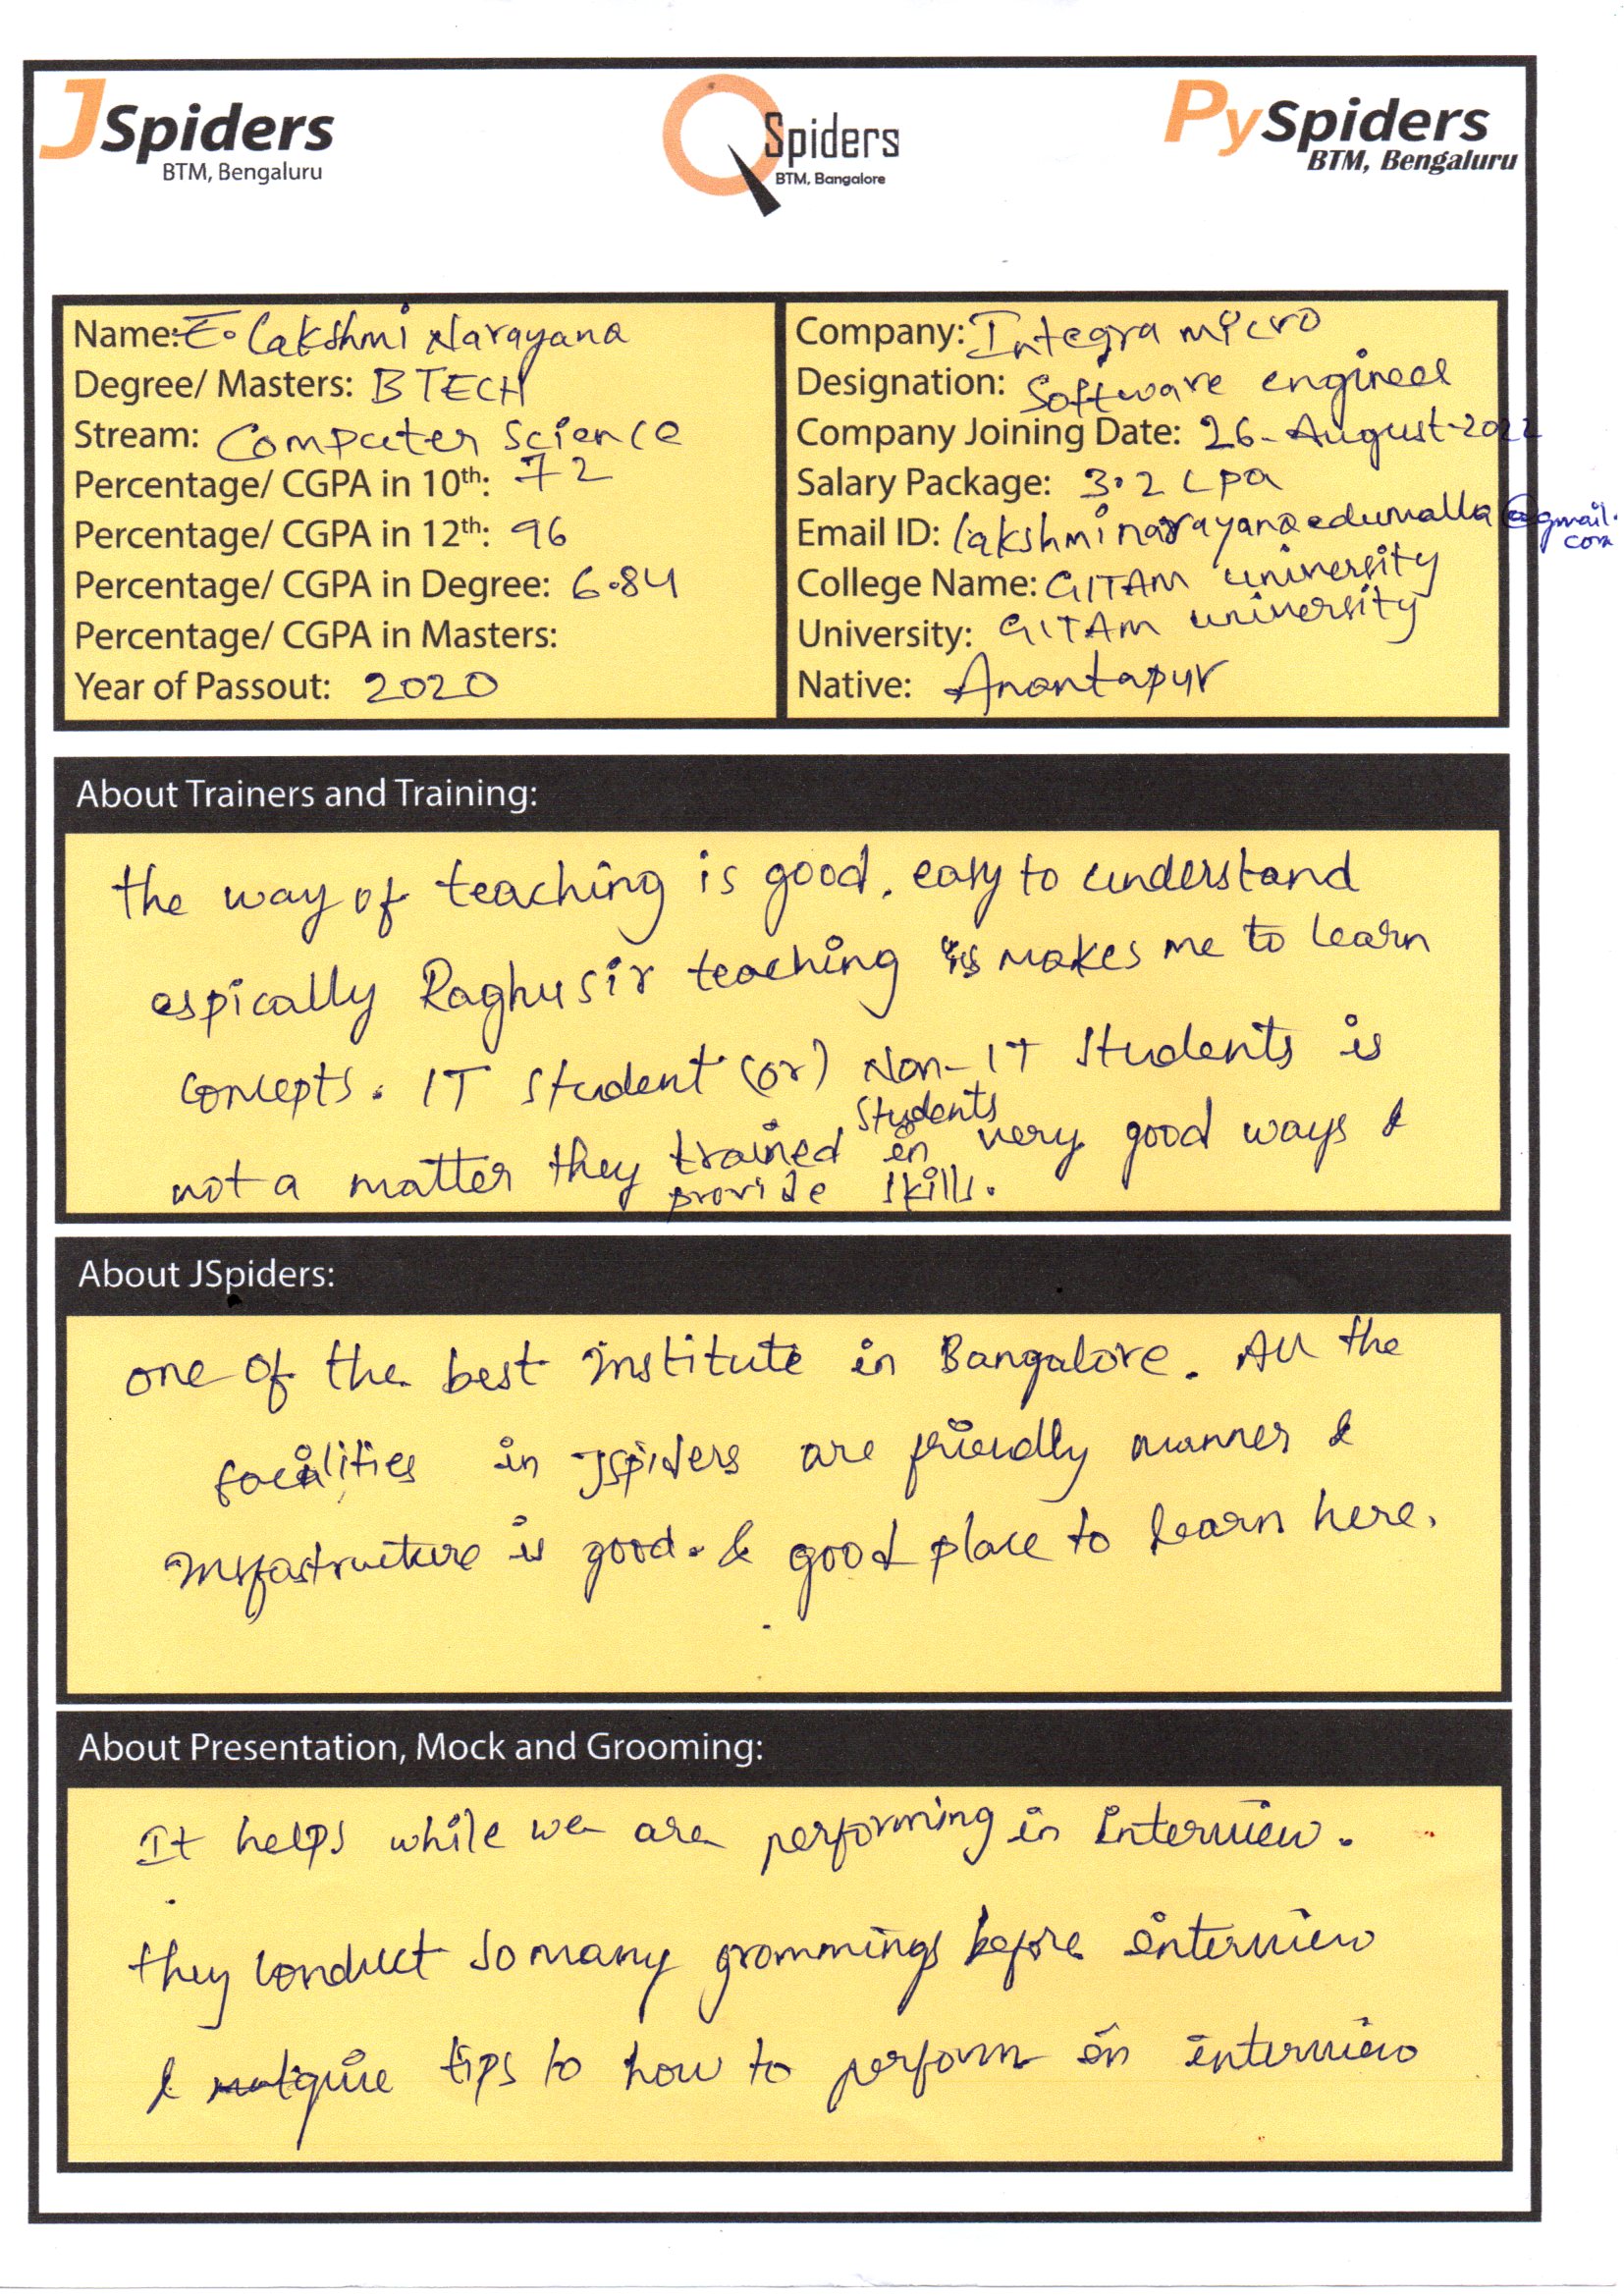 JSpiders
BTM, Bengaluru
QSpiders
BTM, Bangalore
PySpiders
BTM, Bengaluru
Name: E. Lakshmi Narayana
Degree/ Masters: BTECH
Stream: Computer Science
Percentage/ CGPA in 10th: 72
Percentage/ CGPA in 12th: 96
Percentage/ CGPA in Degree: 6.84
Percentage/ CGPA in Masters:
Year of Passout: 2020
Company: Integra micro
Designation: Software engineer
Company Joining Date: 26-August-2022
Salary Package: 3.2 LPA
Email ID: lakshminarayanaedumalla@gmail.com
College Name: GITAM university
University: GITAM university
Native: Anantapur
About Trainers and Training:
the way of teaching is good. easy to understand
espically Raghu sir teaching is makes me to learn
concepts. IT student (or) Non-IT students is
not a matter they trained students in very good ways &
provide skills.
About JSpiders:
one of the best institute in Bangalore. All the
facilities in Jspiders are friendly manner &
is good. & good place to learn here.
About Presentation, Mock and Grooming:
It helps while we are performing in Interview.
they conduct so many grommings before interview
& give tips to how to perform in interview